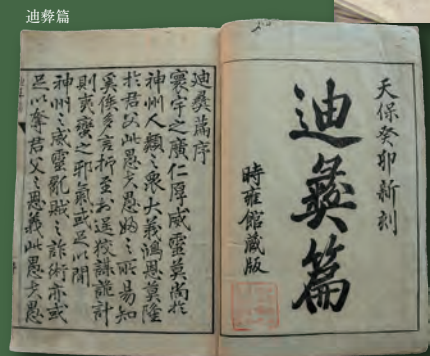 迪彜篇
天保癸卯新刻
迪彜篇
時雍館藏版
迪彜篇序
寰宇之廣仁厚威靈莫尚於
神州人類之衆大義鴻恩莫隆
於君父此愚夫愚婦之所易知
奚俟多言抑至若逞狡謀詭計
則戎蠻之邪氣或足以開
神州之威靈亂賊之詐術亦或
足以奪君父之恩義此愚夫愚